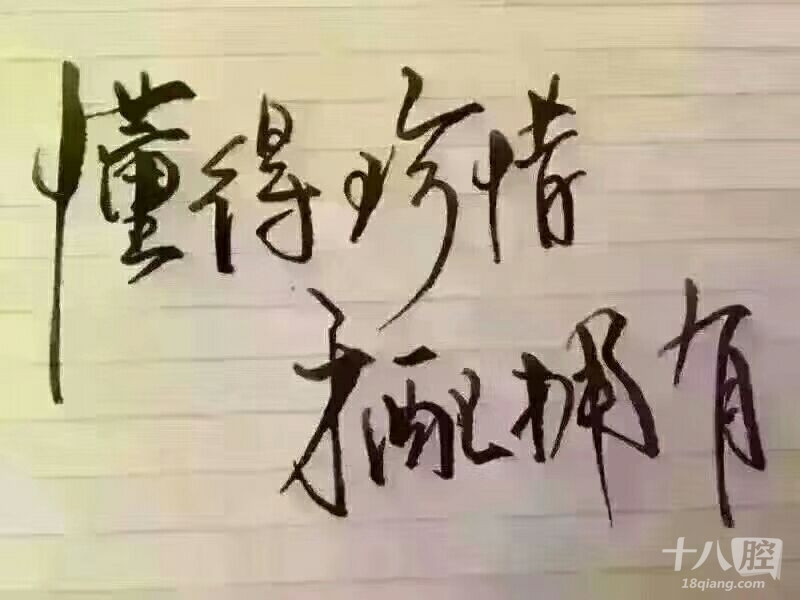 懂得珍惜
才配拥有
十八腔
18qiang.com